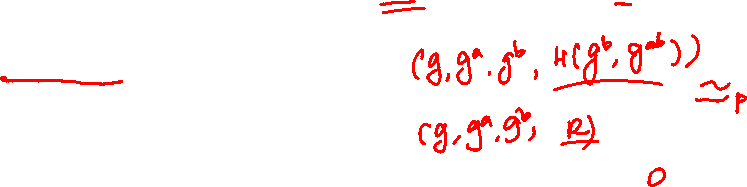 (g, gᵃ, gᵇ, H(gᵇ, gᵃᵇ))
≃ₚ
(g, gᵃ, gᵇ, R)
0